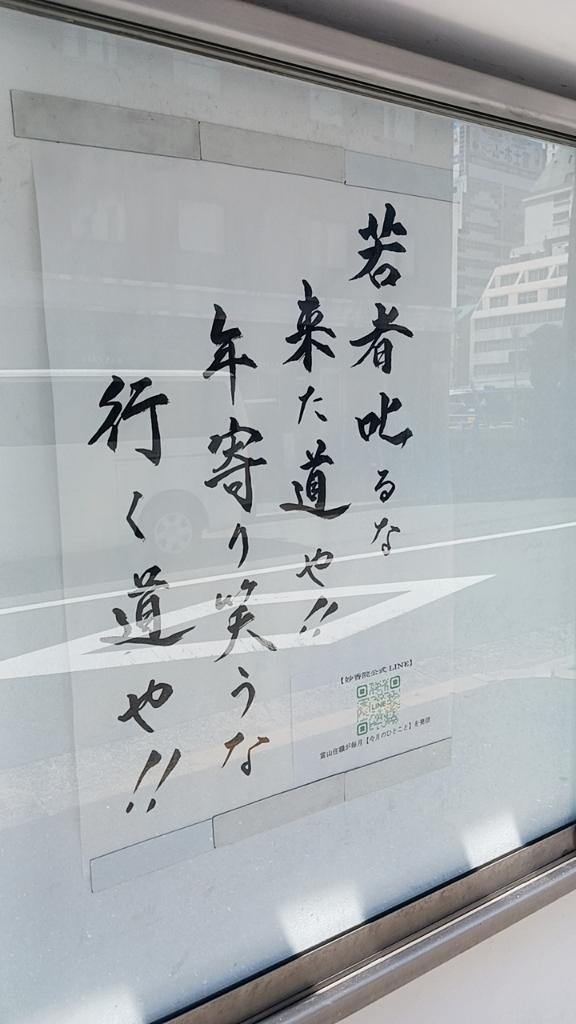 若者叱るな
来た道や!!
年寄り笑うな
行く道や!!
【妙香院公式LINE】
LINE
當山住職が毎月【今月のひとこと】を発信